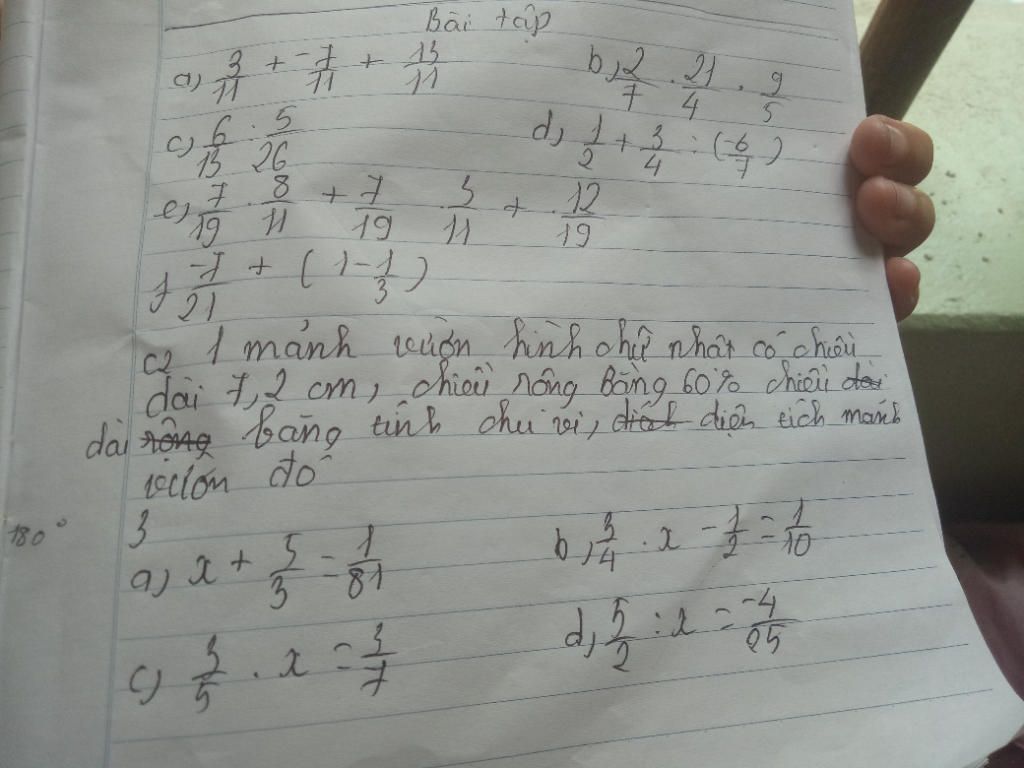 Bài tập
a, 3/11 + -7/11 + 13/11 b, 2/7 . 21/4 . 9/5
c, 6/13 : 5/26 d, 1/2 + 3/4 : (-6/7)
e, 7/19 . 8/11 + 7/19 . 3/11 + . 12/19
f -7/21 + (1 - 1/3)
c2 1 mảnh vườn hình chữ nhật có chiều
dài 7,2 cm, chiều rông Bằng 60% chiều dài
dài rộng bằng tính chu vi, diện tích mảnh
vườn đó
180°
3
a, x + 5/3 = 1/81 b, 3/4 . x - 1/2 = 1/10
c, 3/5 . x = 3/7 d, 5/2 : x = -4/25